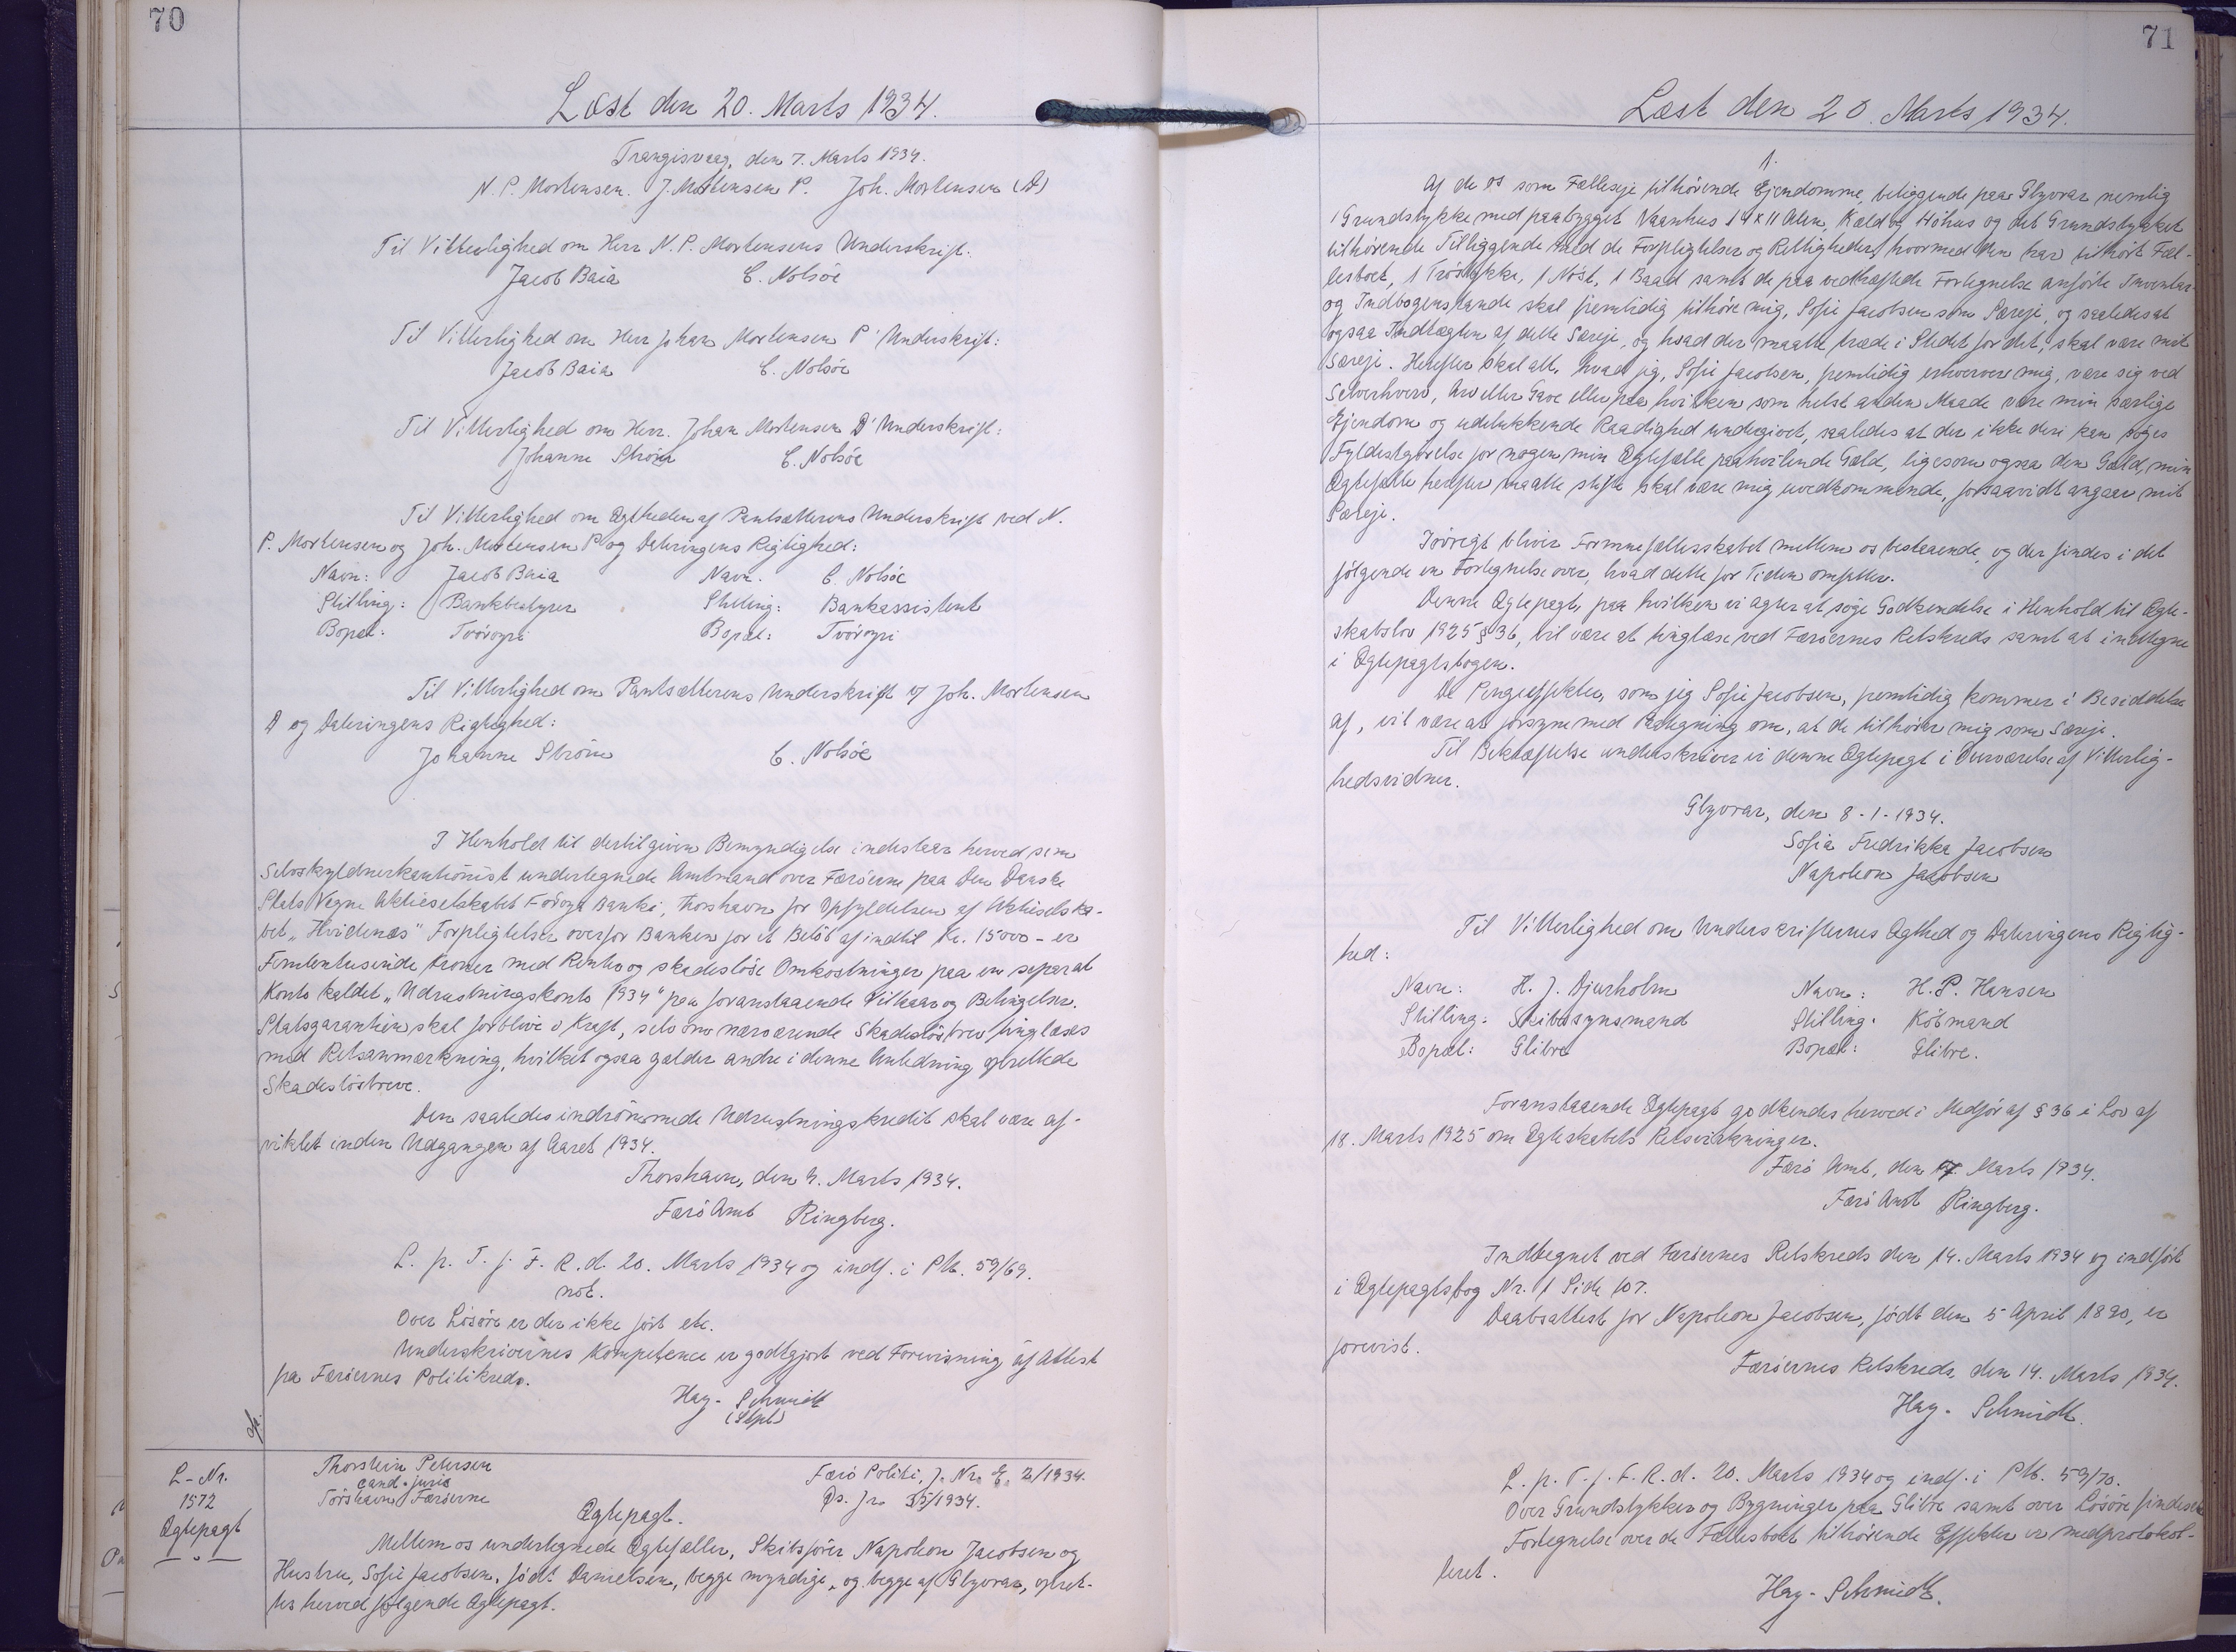 70
Læst den 20. Marts 1934.
Trangisvaag, den 7. Marts 1934.
N. P. Mortensen. J. Mortensen P. Joh. Mortensen (D)
Til Vitterlighed om Herr N. P. Mortensens Underskrift:
Jacob Baia C. Nolsöe
Til Vitterlighed om Herr Johan Mortensen P' Underskrift:
Jacob Baia C. Nolsöe
Til Vitterlighed om Herr. Johan Mortensen D' Underskrift:
Johanne Ström C. Nolsöe
Til Vitterlighed om Ægtheden af Pantsætterens Underskrift ved N.
P. Mortensen og Joh. Mortensen P og Dateringens Rigtighed:
Navn: Jacob Baia Navn. C. Nolsöe
Stilling: Bankbestyrer Stilling: Bankassistent
Bopæl: Tvöroyri Bopæl: Tvöroyri
Til Vitterlighed om Pantsætterens Underskrift af Joh. Mortensen
D og Dateringens Rigtighed:
Johanne Ström C. Nolsöe
I Henhold til dertil given Bemyndigelse indestaar herved som
Selvskyldnerkautionist undertegnede Amtmand over Færöerne paa Den Danske
Stats Vegne Aktieselskabet Föroya Banki, Thorshavn for Opfyldelsen af Aktieselska-
bet "Hvidenæs" Forpligtelser overfor Banken for et Belöb af indtil Kr. 15000 - er
Femtentusinde Kroner med Renter og skadeslöse Omkostninger paa en separat
Konto kaldet "Udrustningskonto 1934" paa foranstaaende Vilkaar og Betingelser.
Statsgarantien skal forblive i Kraft, selv om nærværende Skadeslösbrev tinglæses
med Retsanmærkning, hvilket ogsaa gælder andre i denne Anledning oprettede
Skadeslösbreve.
Den saaledes indrömmede Udrustningskredit skal være af-
viklet inden Udgangen af Aaret 1934.
Thorshavn, den 9. Marts 1934.
Færö Amt Ringberg.
L. p. T. f. F. R. d. 20. Marts 1934 og indf. i Ptb. 59/69.
not.
Over Lösöre er der ikke fört etc.
Underskrivernes Kompetence er godtgjort ved Forevisning af Attest
fra Færöernes Politikreds.
Hay-Schmidt
(Stpl)
L-Nr.
1572
Ægtepagt
Thorstein Petersen
cand. juris
Tórshavn Færöerne
Færö Politi, J. Nr. E. 2/1934.
Ds. Jr. 35/1934.
Ægtepagt.
Mellem os undertegnede Ægtefæller, Skibsförer Napoleon Jacobsen og
Hustru, Sofie Jacobsen, födt Danielsen, begge myndige, og begge af Glyvrar, opret-
tes herved fölgende Ægtepagt.
71
Læst den 20. Marts 1934.
1.
Af de os som Fælleseje tilhörende Ejendomme, beliggende paa Glyvrar nemlig
1 Grundstykke med paabygget Vaanhus 14 x 11 Alen, Kæld og Höhus og det Grundstykket
tilhörende Tilliggende med de Forpligtelser og Rettigheder, hvormed den har tilhört Fæl-
lesboet, 1 Tröstykke, 1 Nöst, 1 Baad samt de paa vedhæftede Fortegnelse anförte Inventar-
og Indbogenstande skal fremtidig tilhöre mig, Sofie Jacobsen som Særeje, og saaledes at
ogsaa Indtægten af dette Særeje, og hvad der maatte træde i Stedet for det, skal være mit
Særeje. Herefter skal alt, hvad jeg, Sofie Jacobsen, fremtidig erhverver mig, være sig ved
Selverhverv, Arv eller Gave eller paa hvilken som helst anden Maade være min særlige
Ejendom og udelukkende Raadighed undergivet, saaledes at der ikke deri kan söges
Fyldestgörelse for nogen min Ægtefælle paahvilende Gæld, ligesom ogsaa den Gæld, min
Ægtefælle herefter maatte stifte skal være mig uvedkommende, forsaavidt angaar mit
Særeje.
Iövrigt bliver Formuefællesskabet mellem os bestaaende, og der findes i det
fölgende en Fortegnelse over, hvad dette for Tiden omfatter.
Denne Ægtepagt, paa hvilken vi agter at söge Godkendelse i Henhold til Ægte-
skabslov 1925 § 36, vil være at tinglæse ved Færöernes Retskreds samt at indtegne
i Ægtepagtsbogen.
De Pengeeffekter, som jeg Sofie Jacobsen, fremtidig kommer i Besiddelse
af, vil være at forsyne med Paategning om, at de tilhörer mig som Særeje.
Til Bekræftelse underskriver vi denne Ægtepagt i Overværelse af Vitterlig-
hedsvidner.
Glyvrar, den 8-1-1934.
Sofia Fredrikka Jacobsen
Napoleon Jacobsen
Til Vitterlighed om Underskrifternes Ægthed og Dateringens Rigtig-
hed:
Navn: H. J. Djurholm Navn: H. P. Hansen
Stilling: Skibssynsmand Stilling: Köbmand
Bopæl: Glibre Bopæl: Glibre.
Foranstaaende Ægtepagt godkendes herved i Medför af § 36 i Lov af
18. Marts 1925 om Ægteskabets Retsvirkninger.
Færö Amt, den 7. Marts 1934.
Færö Amt Ringberg.
Indtegnet ved Færöernes Retskreds den 14. Marts 1934 og indfört
i Ægtepagtsbog Nr. 1 Side 107.
Daabsattest for Napoleon Jacobsen, födt den 5 April 1890, er
forevist.
Færöernes Retskreds, den 14. Marts 1934.
Hay-Schmidt.
L. p. T. f. F. R. d. 20. Marts 1934 og indf. i Ptb. 59/70.
Over Grundstykker og Bygninger paa Glibre samt over Lösöre findes
Fortegnelse over de Fællesboet tilhörende Effekter er medprotokol-
leret.
Hay-Schmidt.